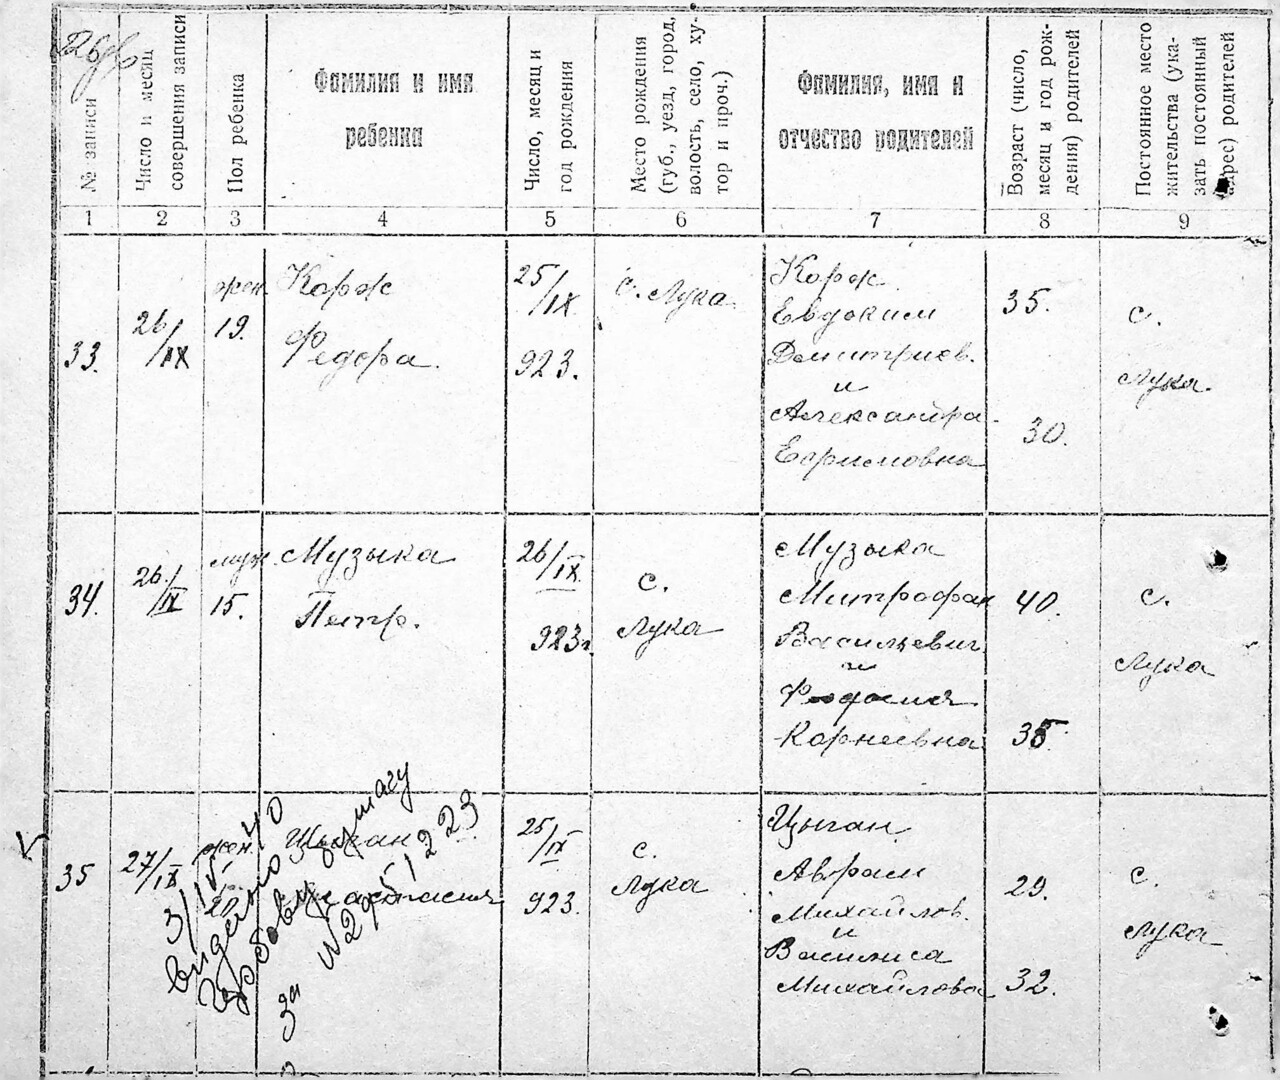 № записи
Число и месяц
совершения записи
Пол ребенка
Фамилия и имя
ребенка
Число, месяц и
год рождения
Место рождения
(губ., уезд, город,
волость, село, ху-
тор и проч.)
Фамилия, имя и
отчество родителей
Возраст (число,
месяц и год рож-
дения) родителей
Постоянное место
жительства (ука-
зать постоянный
адрес) родителей
1 2 3 4 5 6 7 8 9
33.
26/IX
жен.
19.
Корж
Федора.
25/IX
923.
с. Лука
Корж
Евдоким
Дмитриев.
и
Александра
Ефимовна
35.
30.
с.
Лука.
34.
26/IX
муж.
15.
Музыка
Петр.
26/IX
923г.
с.
Лука
Музыка
Митрофан
Васильевич
и
Корнеевна
40.
35.
с.
Лука
35
27/IX
жен.
20.
Цыган
Анастасия
25/IX
923.
с.
Лука
Цыган
Аврам
Михайлов.
и
Василиса
Михайлова
29.
32.
с.
Лука
3/IV 40
видано
бумагу
за №